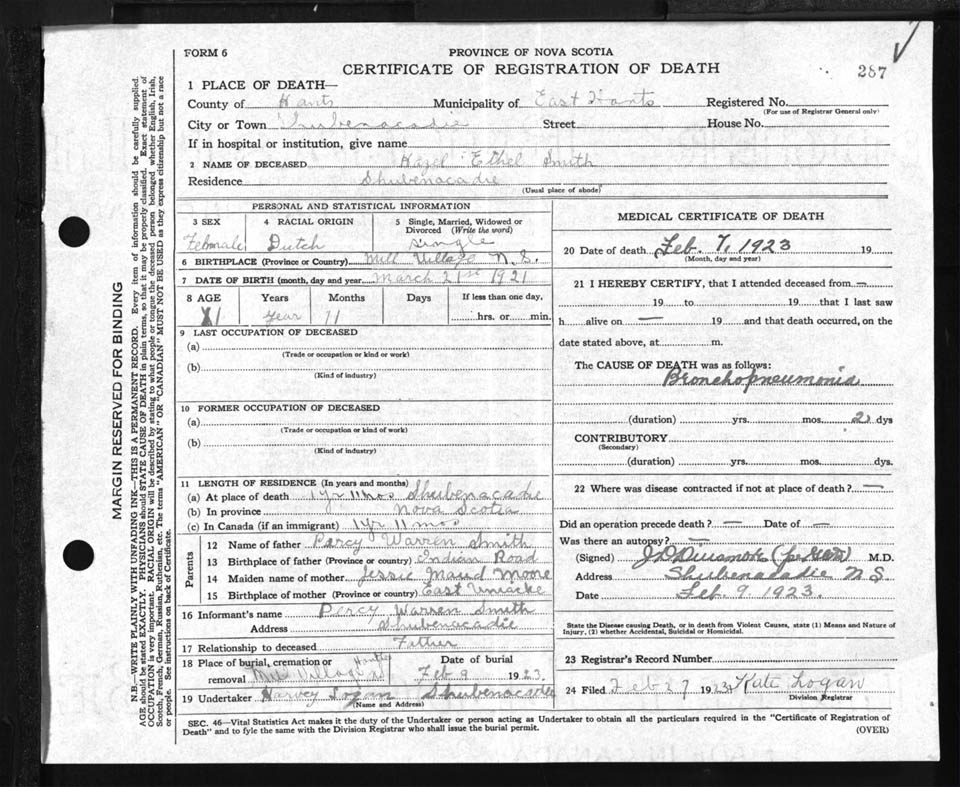 FORM 6
PROVINCE OF NOVA SCOTIA
CERTIFICATE OF REGISTRATION OF DEATH
287
1 PLACE OF DEATH—
County of Hants Municipality of East Hants Registered No.
(For use of Registrar General only)
City or Town Shubenacadie Street House No.
If in hospital or institution, give name
2 NAME OF DECEASED Hazel Ethel Smith
Residence Shubenacadie
(Usual place of abode)
PERSONAL AND STATISTICAL INFORMATION
3 SEX 4 RACIAL ORIGIN 5 Single, Married, Widowed or Divorced (Write the word)
Female Dutch single
6 BIRTHPLACE (Province or Country) Mill Village N.S.
7 DATE OF BIRTH (month, day and year) March 21st 1921
8 AGE Years Months Days If less than one day,
1 year 11 hrs. or min.
9 LAST OCCUPATION OF DECEASED
(a)
(Trade or occupation or kind or work)
(b)
(Kind of industry)
10 FORMER OCCUPATION OF DECEASED
(a)
(Trade or occupation or kind of work)
(b)
(Kind of industry)
11 LENGTH OF RESIDENCE (In years and months)
(a) At place of death 1 yr 11 mos Shubenacadie
(b) In province Nova Scotia
(c) In Canada (if an immigrant) 1 yr 11 mos
Parents
12 Name of father Percy Warren Smith
13 Birthplace of father (Province or country) Indian Road
14 Maiden name of mother Jessie Maud Moore
15 Birthplace of mother (Province or country) East Uniacke
16 Informant's name Percy Warren Smith
Address Shubenacadie
17 Relationship to deceased Father
18 Place of burial, cremation or removal Mill Village Hants Date of burial Feb 9 1923.
19 Undertaker Harvey Logan Shubenacadie
(Name and Address)
MEDICAL CERTIFICATE OF DEATH
20 Date of death Feb. 7, 1923 19
(Month, day and year)
21 I HEREBY CERTIFY, that I attended deceased from —
19 to 19 that I last saw
h alive on — 19 and that death occurred, on the
date stated above, at m.
The CAUSE OF DEATH was as follows:
Bronchopneumonia
(duration) yrs. mos. 2 dys
CONTRIBUTORY
(Secondary)
(duration) yrs. mos. dys.
22 Where was disease contracted if not at place of death? —
Did an operation precede death? — Date of —
Was there an autopsy? —
(Signed) M.D.
Address Shubenacadie N S.
Date Feb. 9. 1923.
State the Disease causing Death, or in death from Violent Causes, state (1) Means and Nature of
Injury, (2) whether Accidental, Suicidal or Homicidal.
23 Registrar's Record Number
24 Filed Feb 27 1923 Kate Logan
Division Registrar
SEC. 46—Vital Statistics Act makes it the duty of the Undertaker or person acting as Undertaker to obtain all the particulars required in the "Certificate of Registration of
Death" and to fyle the same with the Division Registrar who shall issue the burial permit.
(OVER)
MARGIN RESERVED FOR BINDING
N.B.—WRITE PLAINLY WITH UNFADING INK—THIS IS A PERMANENT RECORD. Every item of information should be carefully supplied.
AGE should be stated EXACTLY. PHYSICIANS should STATE CAUSE OF DEATH in plain terms, so that it may be properly classified. Exact statement of
OCCUPATION is very important. RACIAL ORIGIN will be described by stating to what people or tongue the deceased person belonged whether English, Irish,
Scotch, French, German, Russian, Ruthenian, etc. The terms "AMERICAN" OR "CANADIAN" MUST NOT BE USED as they express citizenship but not a race
or people. See instructions on back of Certificate.